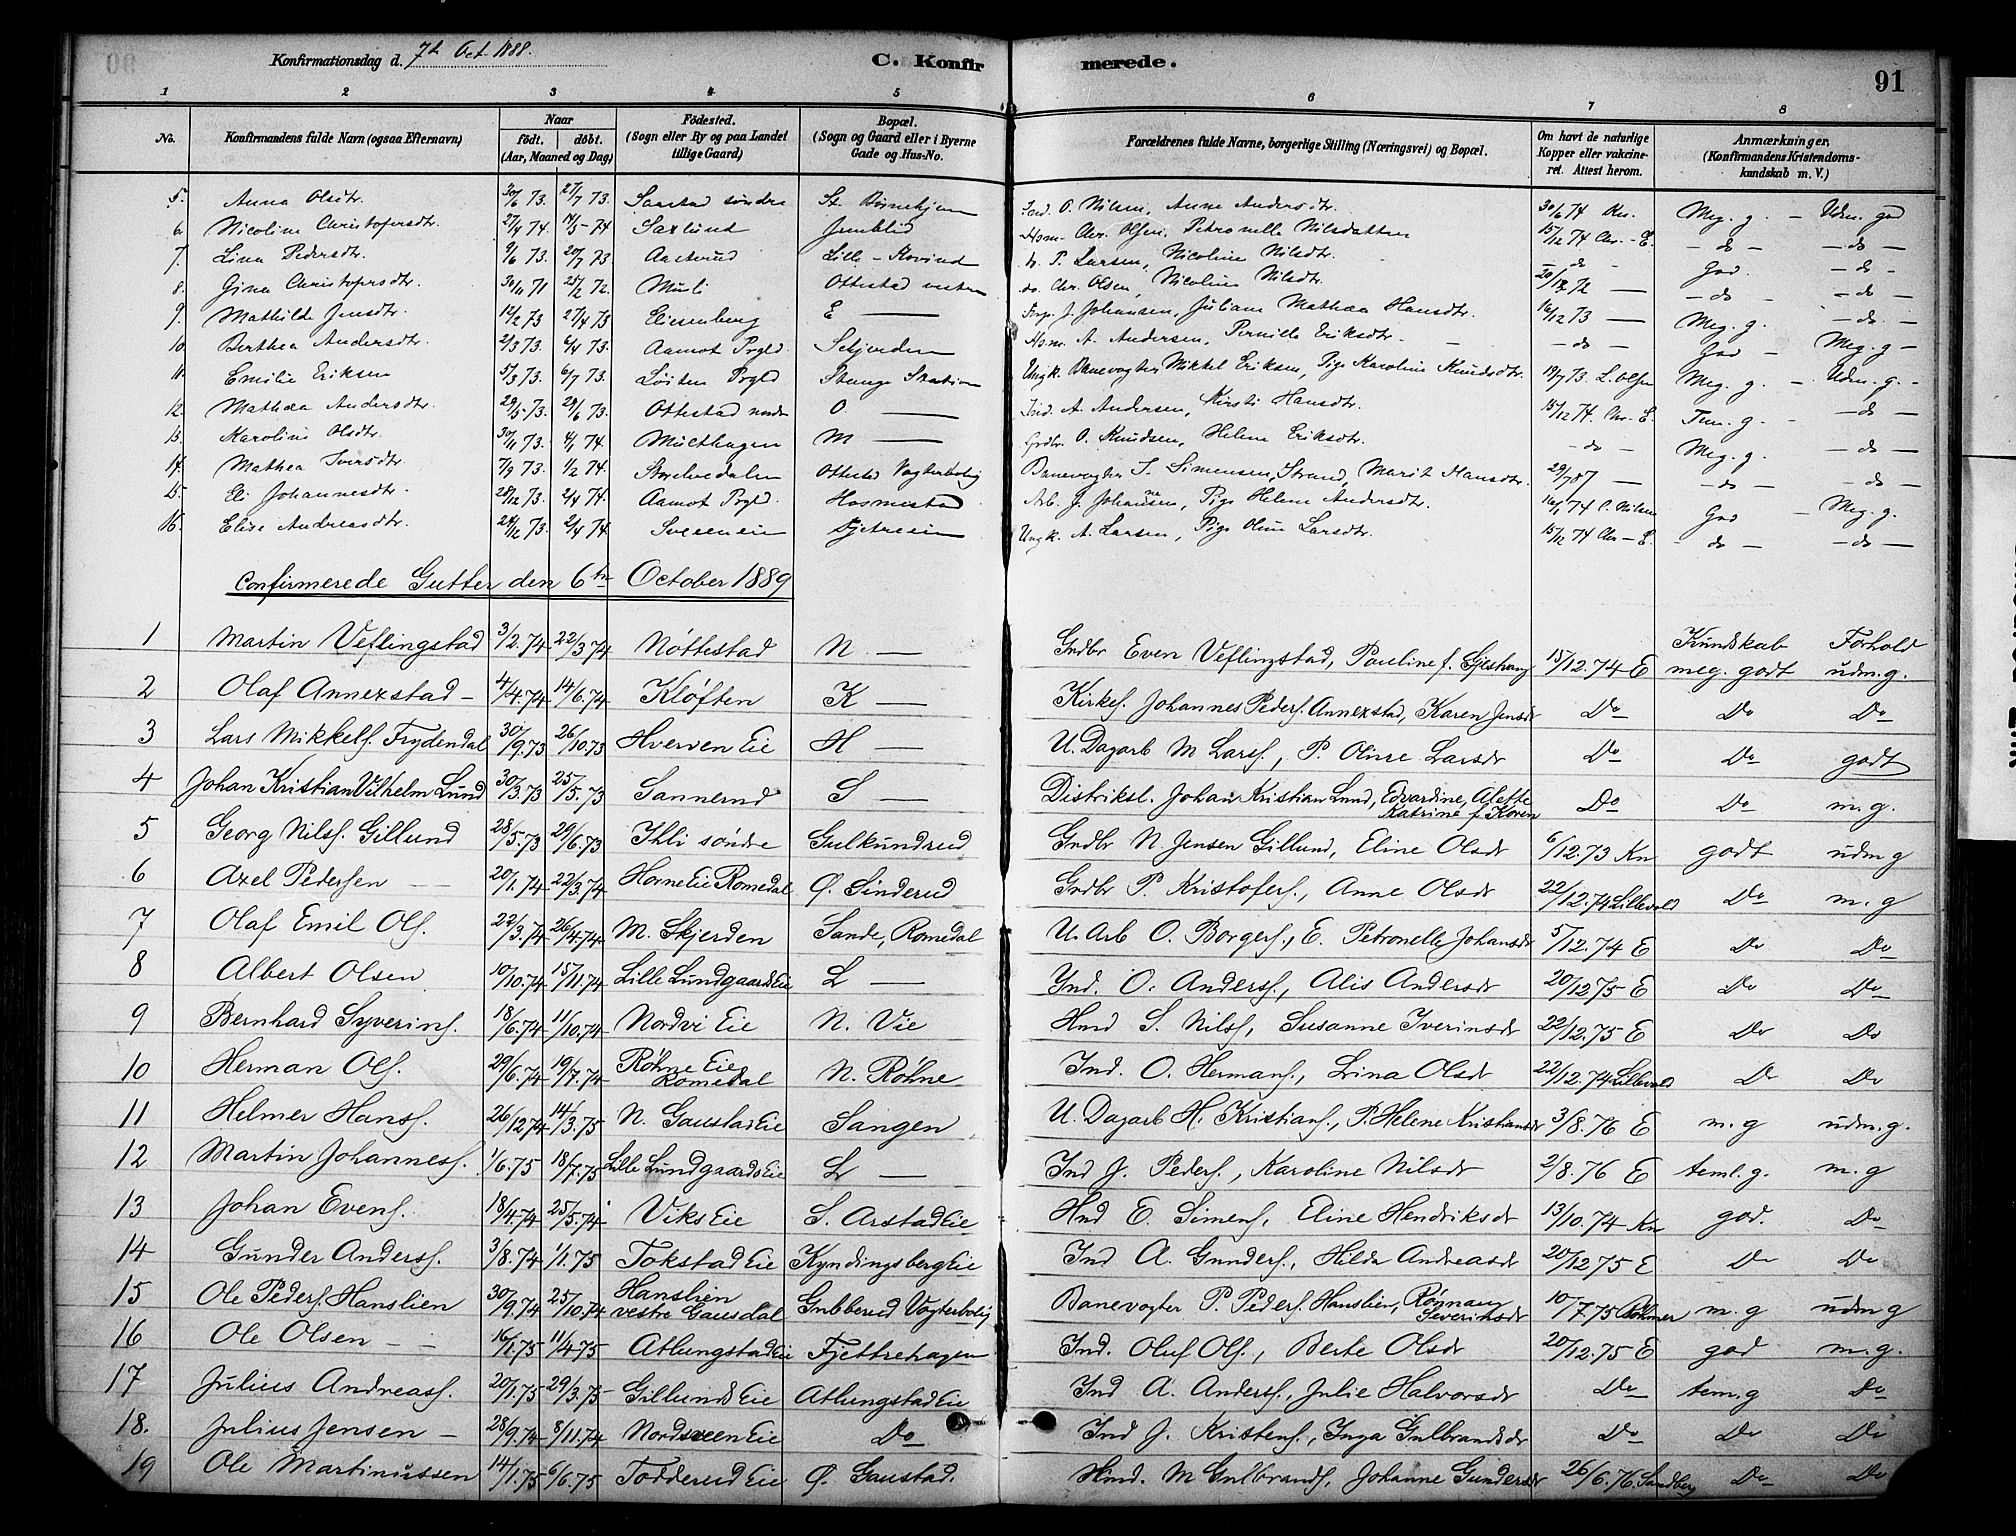 Konfirmationsdag d. 7de Oct. 1888.
C. Konfirmerede.
91
1 2 3 4 5 6 7 8
No. Konfirmandens fulde Navn (ogsaa Efternavn) Naar født. døbt. (Aar, Maaned og Dag) Fødested. (Sogn eller By og paa Landet tillige Gaard) Bopæl. (Sogn og Gaard eller i Byerne Gade og Hus-No. Forældrenes fulde Navne, borgerlige Stilling (Næringsvei) og Bopæl. Om havt de naturlige Kopper eller vakcineret. Attest herom. Anmærkninger. (Konfirmandens Kristendomskundskab m. V.)
5. Anna Olsdtr. 30/6 73. 27/7 73. Saastad søndre O. Nilsen, Anne Andersdtr. 30/6 74 Kn. Meg. g. – Udm. god
6. Nicoline Christofersdtr. 27/4 74. 14/5 74 Saxlund Chr. Olsen, Petronelle Nilsdatter 15/12 74 Chr. E. – do – – do –
7. Lina Pedersdtr. 9/6 73. 20/7 73 Aasterud Lille-Rovind P. Larsen, Nicoline Nilsdtr. – do – God – do –
8. Gina Christofersdtr. 30/11 71 25/2 72. Muli Ottestad vestre do. Chr. Olsen, Nicoline Nilsdtr. 20/12 72 — – do – – do –
9. Mathilde Jensdtr. 12/2 73 27/4 73 Eliesenberg E — J. Johansen, Juliane Mathea Hansdtr. 16/12 73 — Meg. g. – do. –
10. Berthea Andersdtr. 2/3 73. 6/4 73. Aamot Prgld. Skjerden Hsm. A. Andersen, Pernille Eriksdtr. – do – God – Meg. g –
11. Emilie Eriksen 5/3 73. 6/7 73. Løiten Prgld Stange Station Ungk. Banevogter Mikkel Eriksen, Pige Karoline Knudsdtr. 19/7 73. L. Olsen Meg. g. – Udm. g. –
12. Mathea Andersdtr. 29/5 73. 29/6 73. Ottestad nordr O — Ind. A. Andersen, Kirsti Hansdtr. 15/12 74 Chr. E. Tem. g. – – do –
13. Karoline Olsdtr. 30/11 73. 4/1 74 Multhagen M — Grdbr. O. Knudsen, Helene Eriksdtr. – do – Meg. g. – do –
14. Mathea Iversdtr. 7/9 73. 1/2 74. Storelvedalen Ottestad Vogterbolig Banevogter I. Simensen, Strand, Marit Hansdtr. 29/7 87 — – do – – do –
15. Eli Johannesdtr. 28/12 73. 2/4 74. Aamot Prgld. Hosmestad Arb. J. Johansen, Pige Helene Andersdtr. 16/1 74 O. Nilsen God – Meg. g.
16. Elise Andreasdtr. 24/12 73. 2/4 74. Sveenseie Fjetreeie Ungk. A. Larsen, Pige Oline Larsdtr. 15/12 74 Chr. – E. – do – – do –
Confirmerede Gutter den 6te October 1889
Kundskab Forhold
1 Martin Veflingstad 3/2.74 22/3.74 Nøttestad N. — Grdbr Even Veflingstad, Pauline f. Gjestvang 15/12.74 E meg. godt udm. g.
2 Olaf Annexstad – 4/4.74 14/6.74 Kløften K — Kirkes. Johannes Peders. Annexstad, Karen Jensdr Do Do Do
3 Lars Mikkels. Frydendal 30/9.73 26/10.73 Hverven Eie H — U. Dagarb M Larss., P. Oline Larsdr Do Do godt
4 Johan Kristian Vilhelm Lund 30/3.73 25/5.73 Sannerud S — Distriksl. Johan Kristian Lund, Edvardine, Alette Katrine f. Koren Do Do m. g.
5 Georg Nilss. Gillund 28/5.73 29/6.73 Ihli søndre Gulkundrud Grdbr N. Jensen Gillund, Eline Olsdr 6/12.73 Kn godt udm g
6 Axel Pedersen — 20/1.74 22/3.74 Horne Eie Romedal Ø. Sinderud Grdbr P. Kristofers., Anne Olsdr 22/12.74 Lillevold Do m. g
7 Olaf Emil Ols. 22/3.74 26/4.74 M. Skjerden Sande, Romedal U. Arb O. Borgers., E. Petronelle Johansdr 5/12.74 E Do Do
8 Albert Olsen 10/10.74 15/11.74 Lille Lundgaards Eie L — Ind. O. Anderss., Alis Andersdr 20/12.75 E Do Do
9 Bernhard Syverins. 18/6.74 11/10.74 Nordvi Eie N. Vie Hmd S. Nilss., Susanne Iverinsdr 22/12.75 E Do Do
10 Herman Ols. 29/6.74 19/7.74 Røhne Eie Romedal N. Røhne Ind. O. Hermans., Lina Olsdr 22/12.74 Lillevold Do Do
11 Helmer Hanss. 26/12.74 14/3.75 N. Gaustad Eie Sangen U. Dagarb H. Kristians., P. Helene Kristiansdr 3/8.76 E m. g udm. g.
12 Martin Johanness. 1/6.75 18/7.75 Lille Lundgaards Eie L — Ind J. Peders., Karoline Nilsdr 2/8.76 E teml. g. m. g
13 Johan Evens. 18/4.74 25/5.74 Viks Eie S. Arstad Eie Hmd E. Simens., Eline Hendriksdr 13/10.74 Kn god. Do
14 Gunder Anderss. 3/8.74 1/1.75 Tokstad Eie Kyndingsberg Eie Ind A. Gunders., Hilda Andreasdr 20/12.75 E Do Do
15 Ole Peders. Hanslien 30/9.74 25/10.74 Hanslien vestre Gausdal Gubberud Vogterbolig Banevogter P. Peders. Hanslien, Rønnaug Severinsdr 10/7.75 m. g udm g
16 Ole Olsen — 16/1.75 11/4.75 Atlungstad Eie Fjettrehagen Ind. Oluf Ols., Berte Olsdr 20/12.75 E god m. g.
17 Julius Andreass. 20/1.75 29/3.75 Gillunds Eie Atlungstad Eie Ind A. Anderss., Julie Halvorsdr Do tem. g Do
18. Julius Jensen – 28/9.74 8/11.74 Nordsveen Eie Do Ind J. Kristens., Inga Gulbrandsdr Do Do Do
19 Ole Martinussen 14/1.75 6/6.75 Todderud Eie Ø. Gaustad. Hmd. M Gulbrands., Johanne Gundersdr 26/6.76. Sandberg Do Do